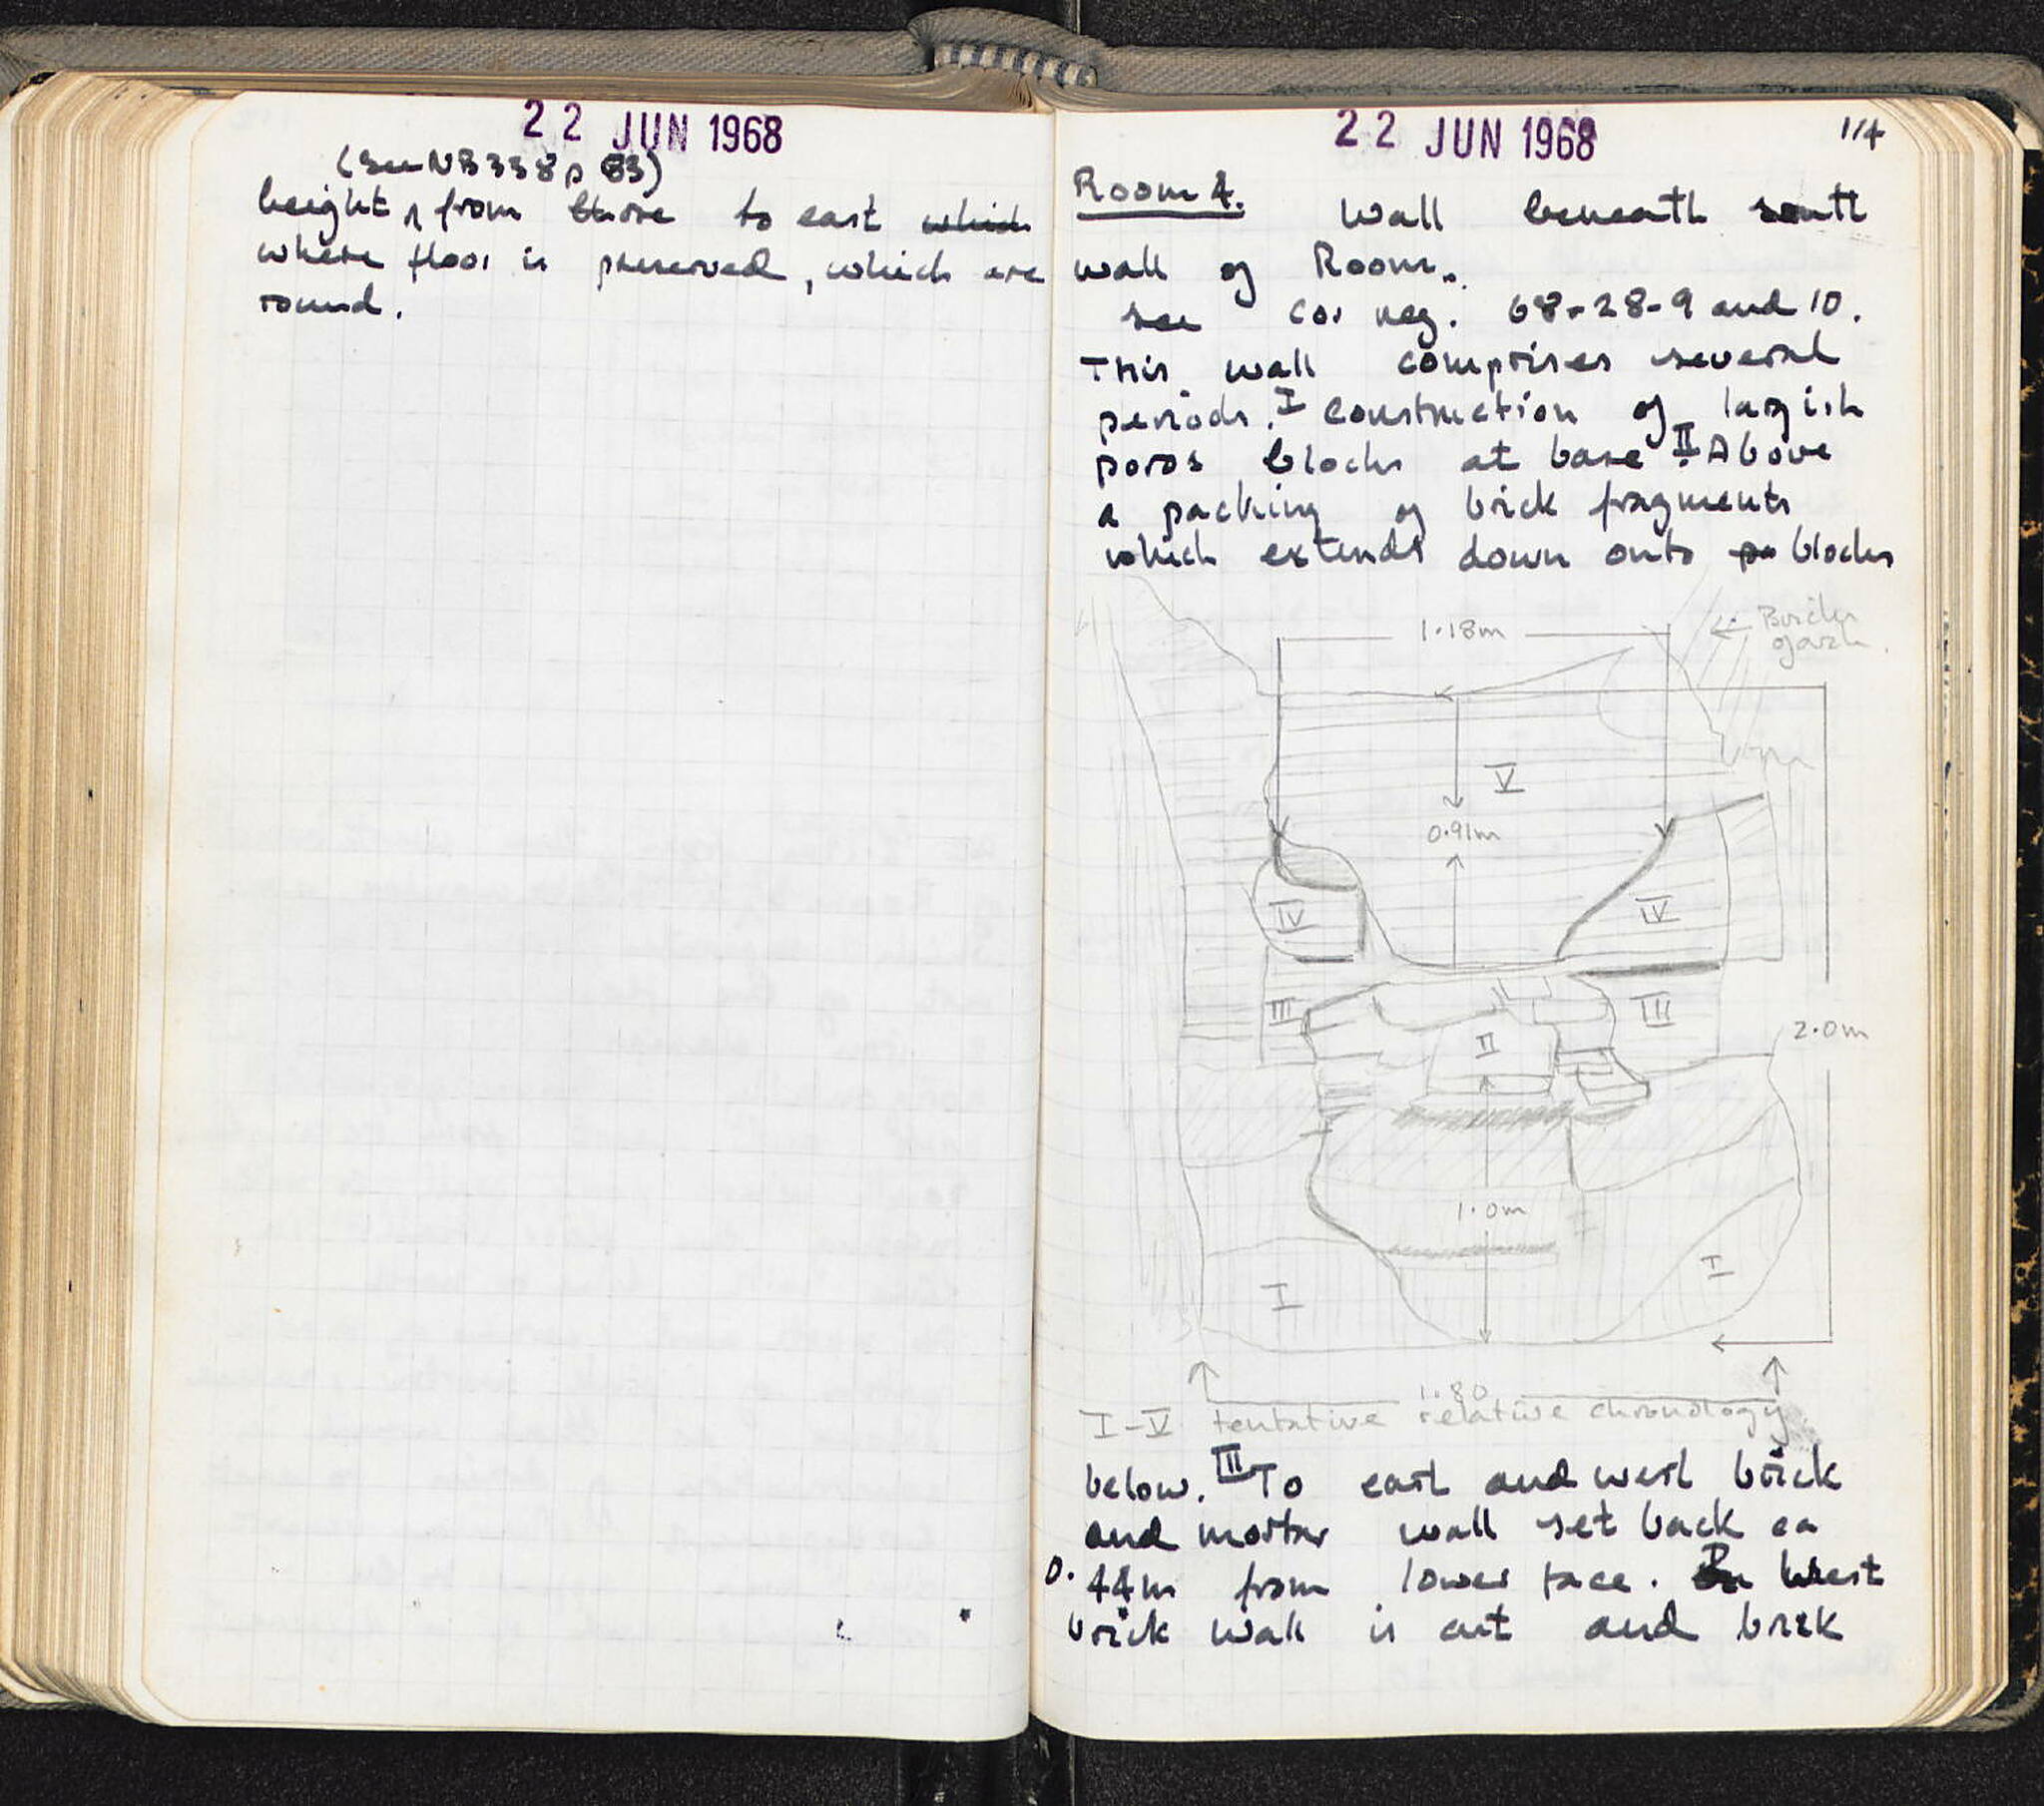 22 JUN 1968
(see NB 338 p 83)
height, from those to east which
where floor is preserved, which are
round.
22 JUN 1968
114
Room 4. Wall beneath south
wall of Room.
see Cor neg. 68-28-9 and 10.
This wall comprises several
periods. I construction of largish
poros blocks at base II. Above
a packing of brick fragments
which extends down onto po blocks
1.18m
← Bricks
of arch.
V
0.91m
IV
IV
III
III
II
2.0m
1.0m
I
I
1.80
I-V tentative relative chronology
below. III To east and west brick
and mortar wall set back ca
0.44m from lower face. West
brick wall is cut and brick